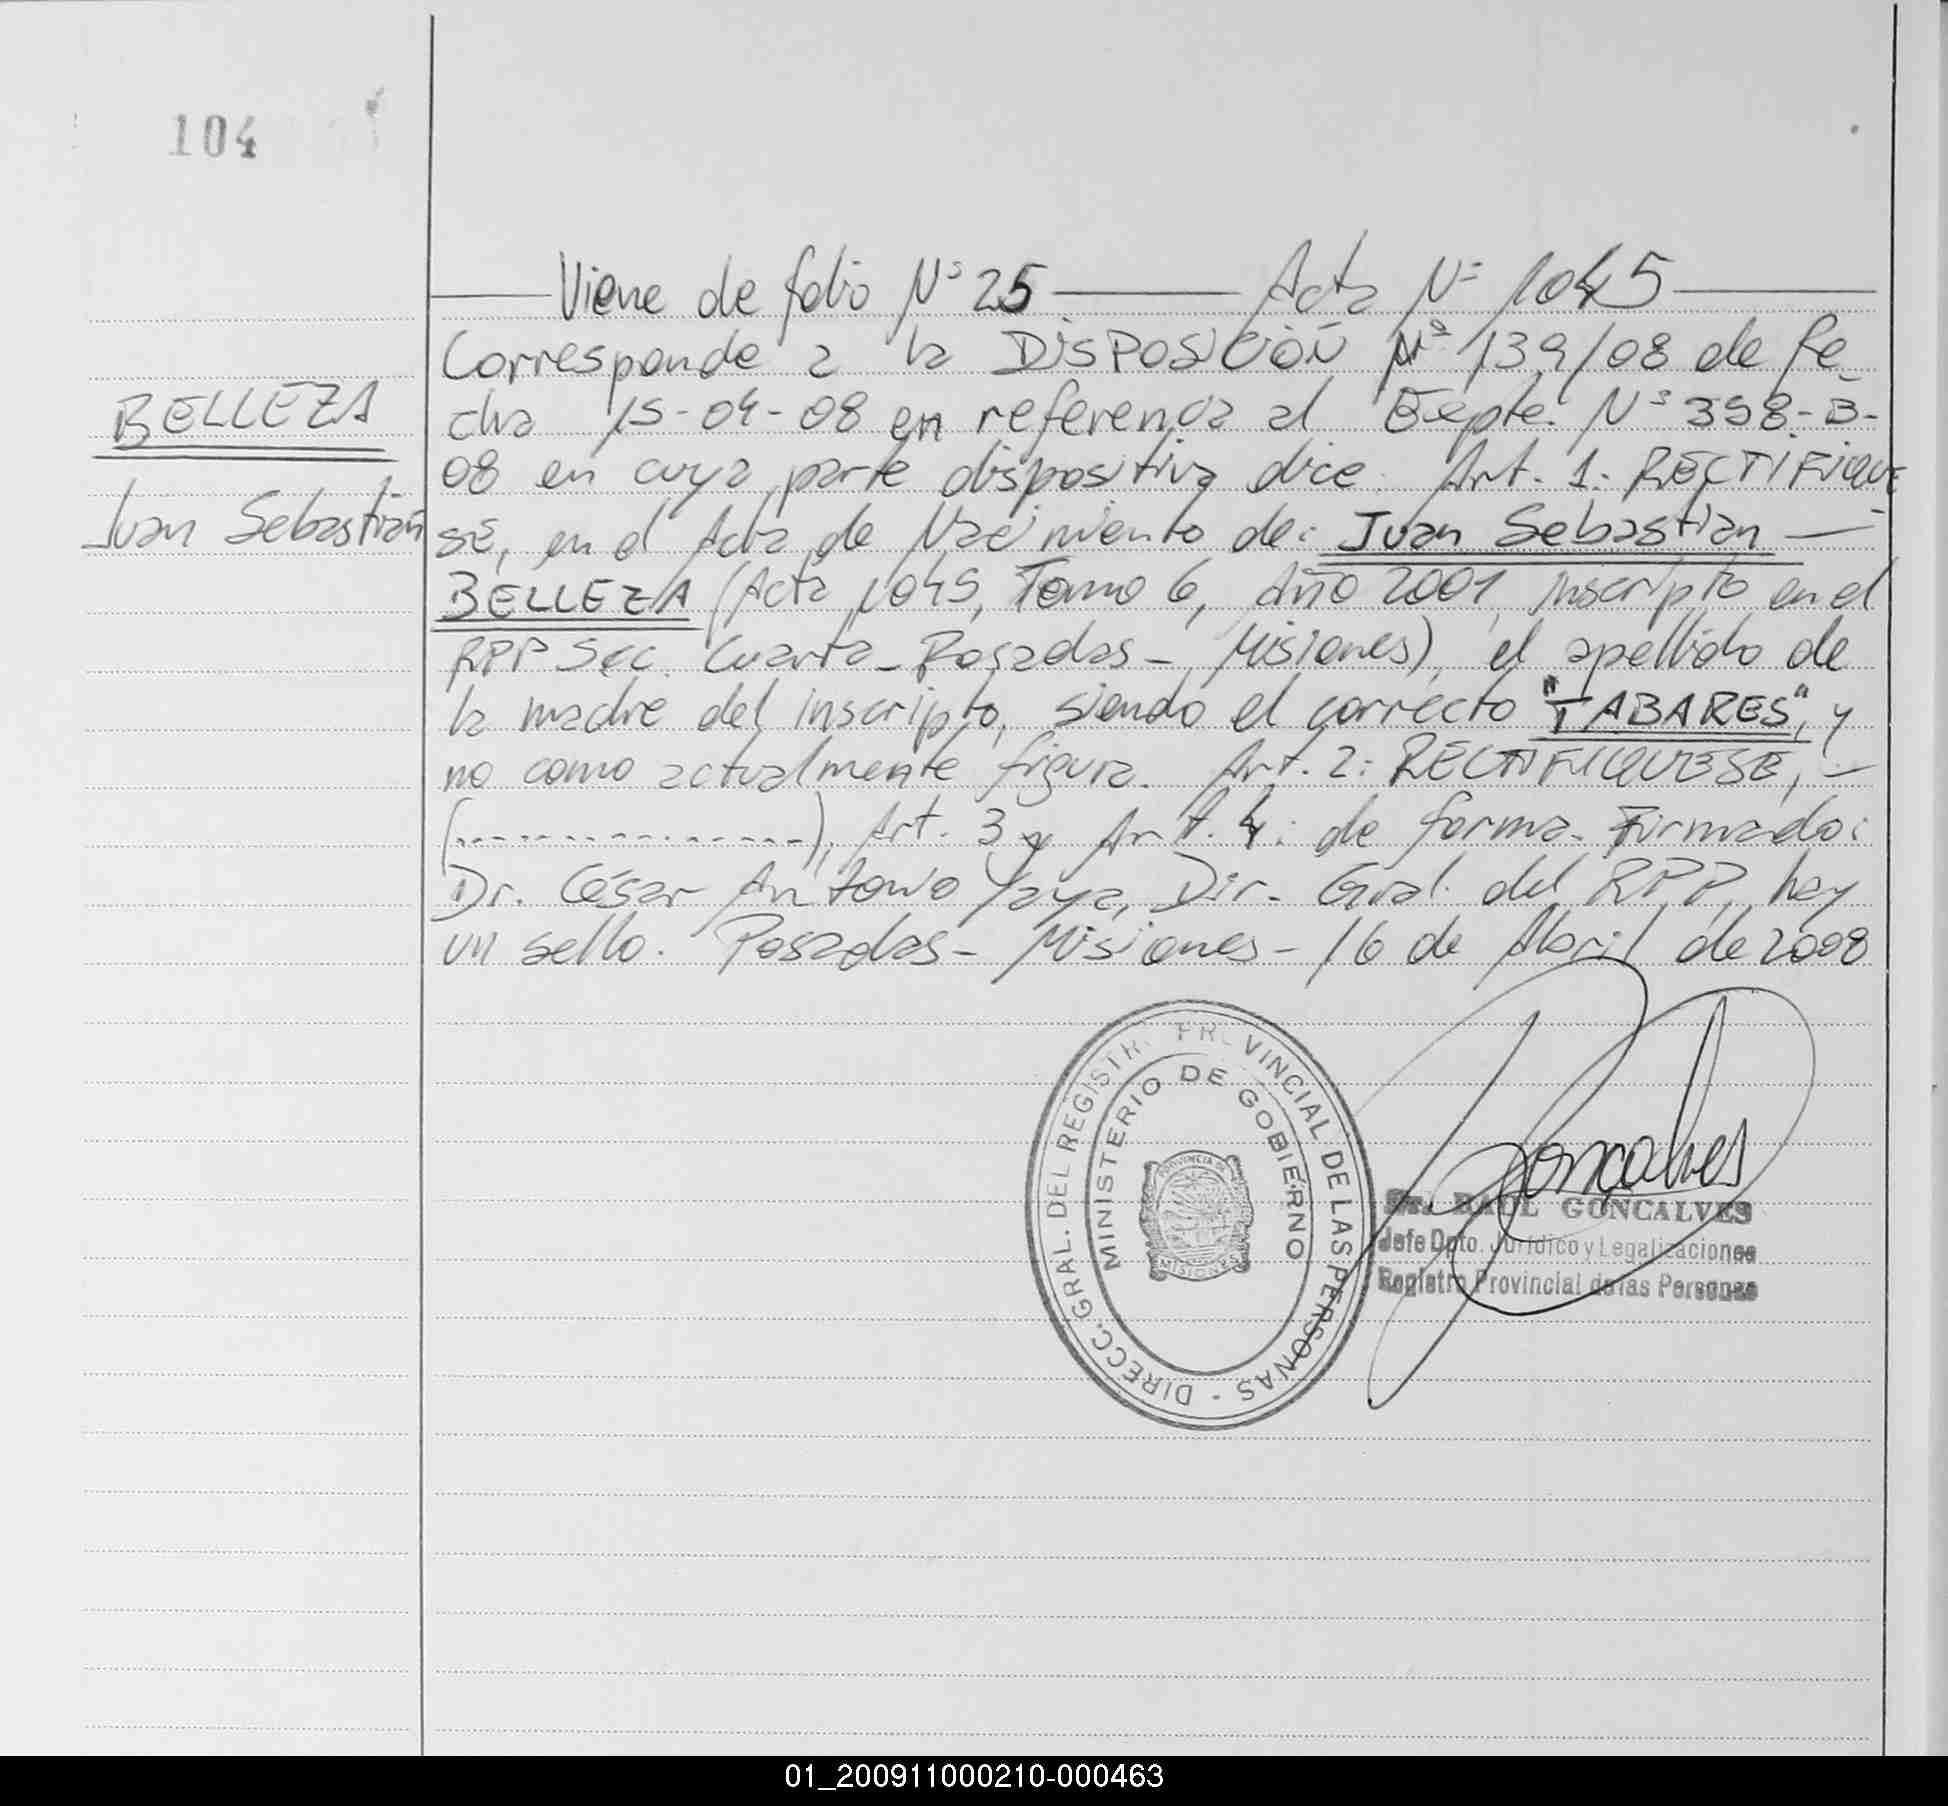 104
Viene de folio Nº 25 Acta Nº 1045
Corresponde a la DISPOSICIÓN Nº 139/08 de fe
cha 15-04-08 en referencia al Expte. Nº 398-B-
08 en cuya parte dispositiva dice: Art. 1: RECTIFIQUE
SE, en el Acta de Nacimiento de: Juan Sebastian
BELLEZA (Acta 1045, Tomo 6, Año 2001, inscripto en el
RPP Sec. Cuarta - Posadas - Misiones), el apellido de
la madre del inscripto, siendo el correcto "TABARES", y
no como actualmente figura. Art. 2: RECTIFIQUESE, -
(----------------), Art. 3 y Art. 4: de forma. Firmado:
Dr. César Antonio Yaya, Dir. Gral. del RPP, hay
un sello. Posadas - Misiones - 16 de Abril de 2008
BELLEZA
Juan Sebastián
DIRECC. GRAL. DEL REGISTRO PROVINCIAL DE LAS PERSONAS -
MINISTERIO DE GOBIERNO
PROVINCIA DE
MISIONES
Goncalves
Dr. RAUL GONCALVES
Jefe Dpto. Jurídico y Legalizaciones
Registro Provincial de las Personas
01_200911000210-000463